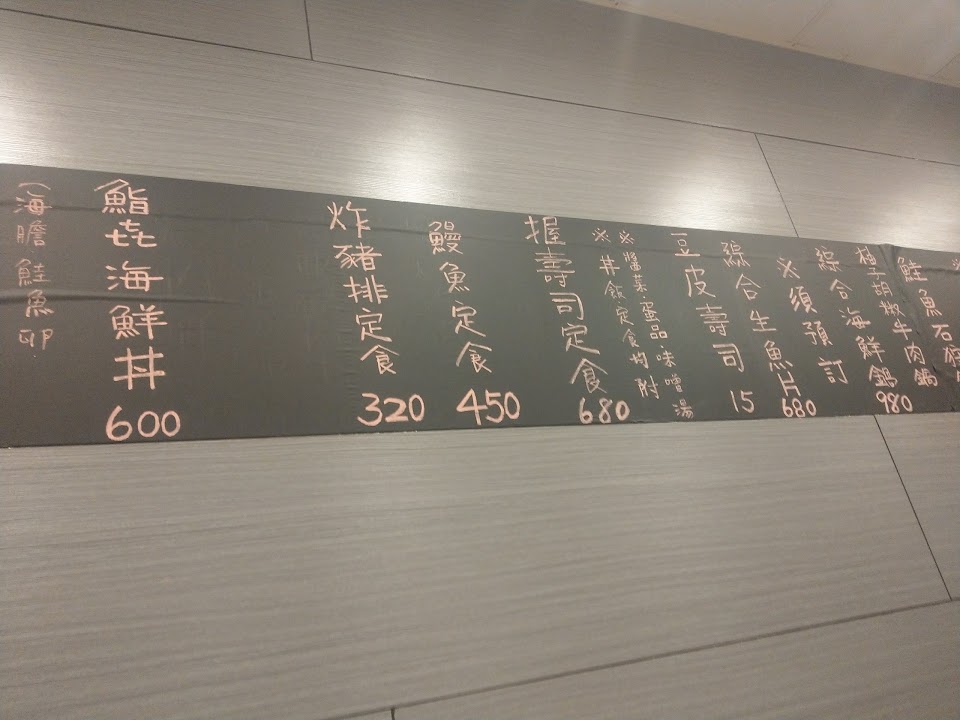 鮭魚石狩
柚子胡嫩牛肉鍋
綜合海鮮鍋
980
※須預訂
綜合生魚片
680
豆皮壽司
15
※醬菜.蛋品.味噌湯
※丼飯定食均附
握壽司定食
680
鰻魚定食
450
炸豬排定食
320
鮨㐂海鮮丼
600
(海膽鮭魚卵